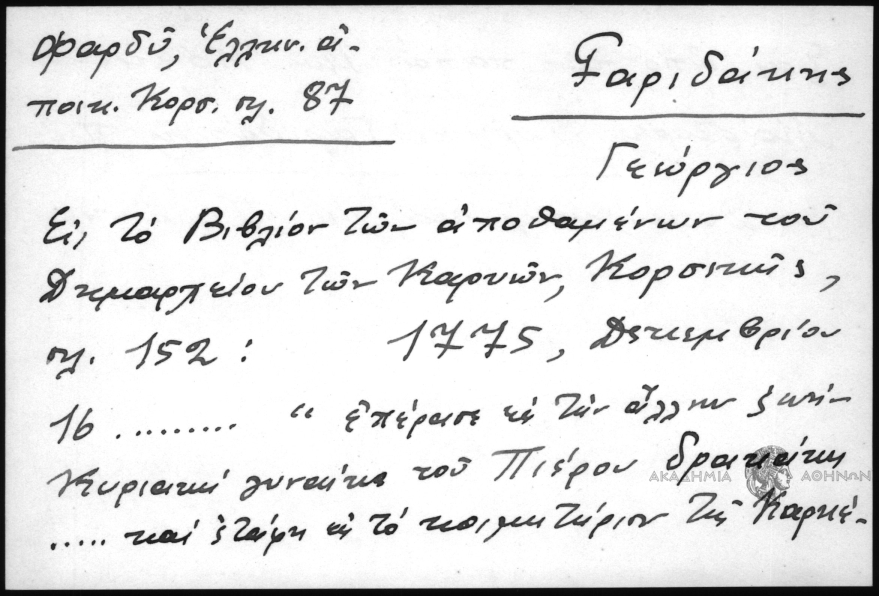 Φαρδῦ, Ἑλλην. ἀ-
ποικ. Κορσ. σελ. 87
Γαριδάκης
Γεώργιος
Εἰς τὸ Βιβλίον τῶν ἀποθαμένων τοῦ
Δημαρχείου τῶν Καρυῶν, Κορσικῆς,
σελ. 152: 1775, Δεκεμβρίου
16 ......... “ ἐπέρασε εἰς τὴν ἄλλην ζωὴν
Κυριακὴ γυναίκα τοῦ Πιέρου δρακάκη
..... καὶ ἐτάφη εἰς τὸ κοιμητήριον τῆς Καργέ-
ΑΚΑΔΗΜΙΑ ΑΘΗΝΩΝ